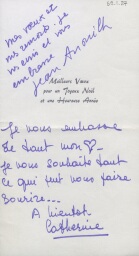 23.1.74
mes vœux et
mes amitiés. Je
vous embrasse
Jean Anouilh
Meilleurs Vœux
pour un Joyeux Noël
et une Heureuse Année
Je vous embrasse
de tout mon ♡.
Je vous souhaite tout
ce qui peut vous faire
sourire...
A bientôt
Catherine